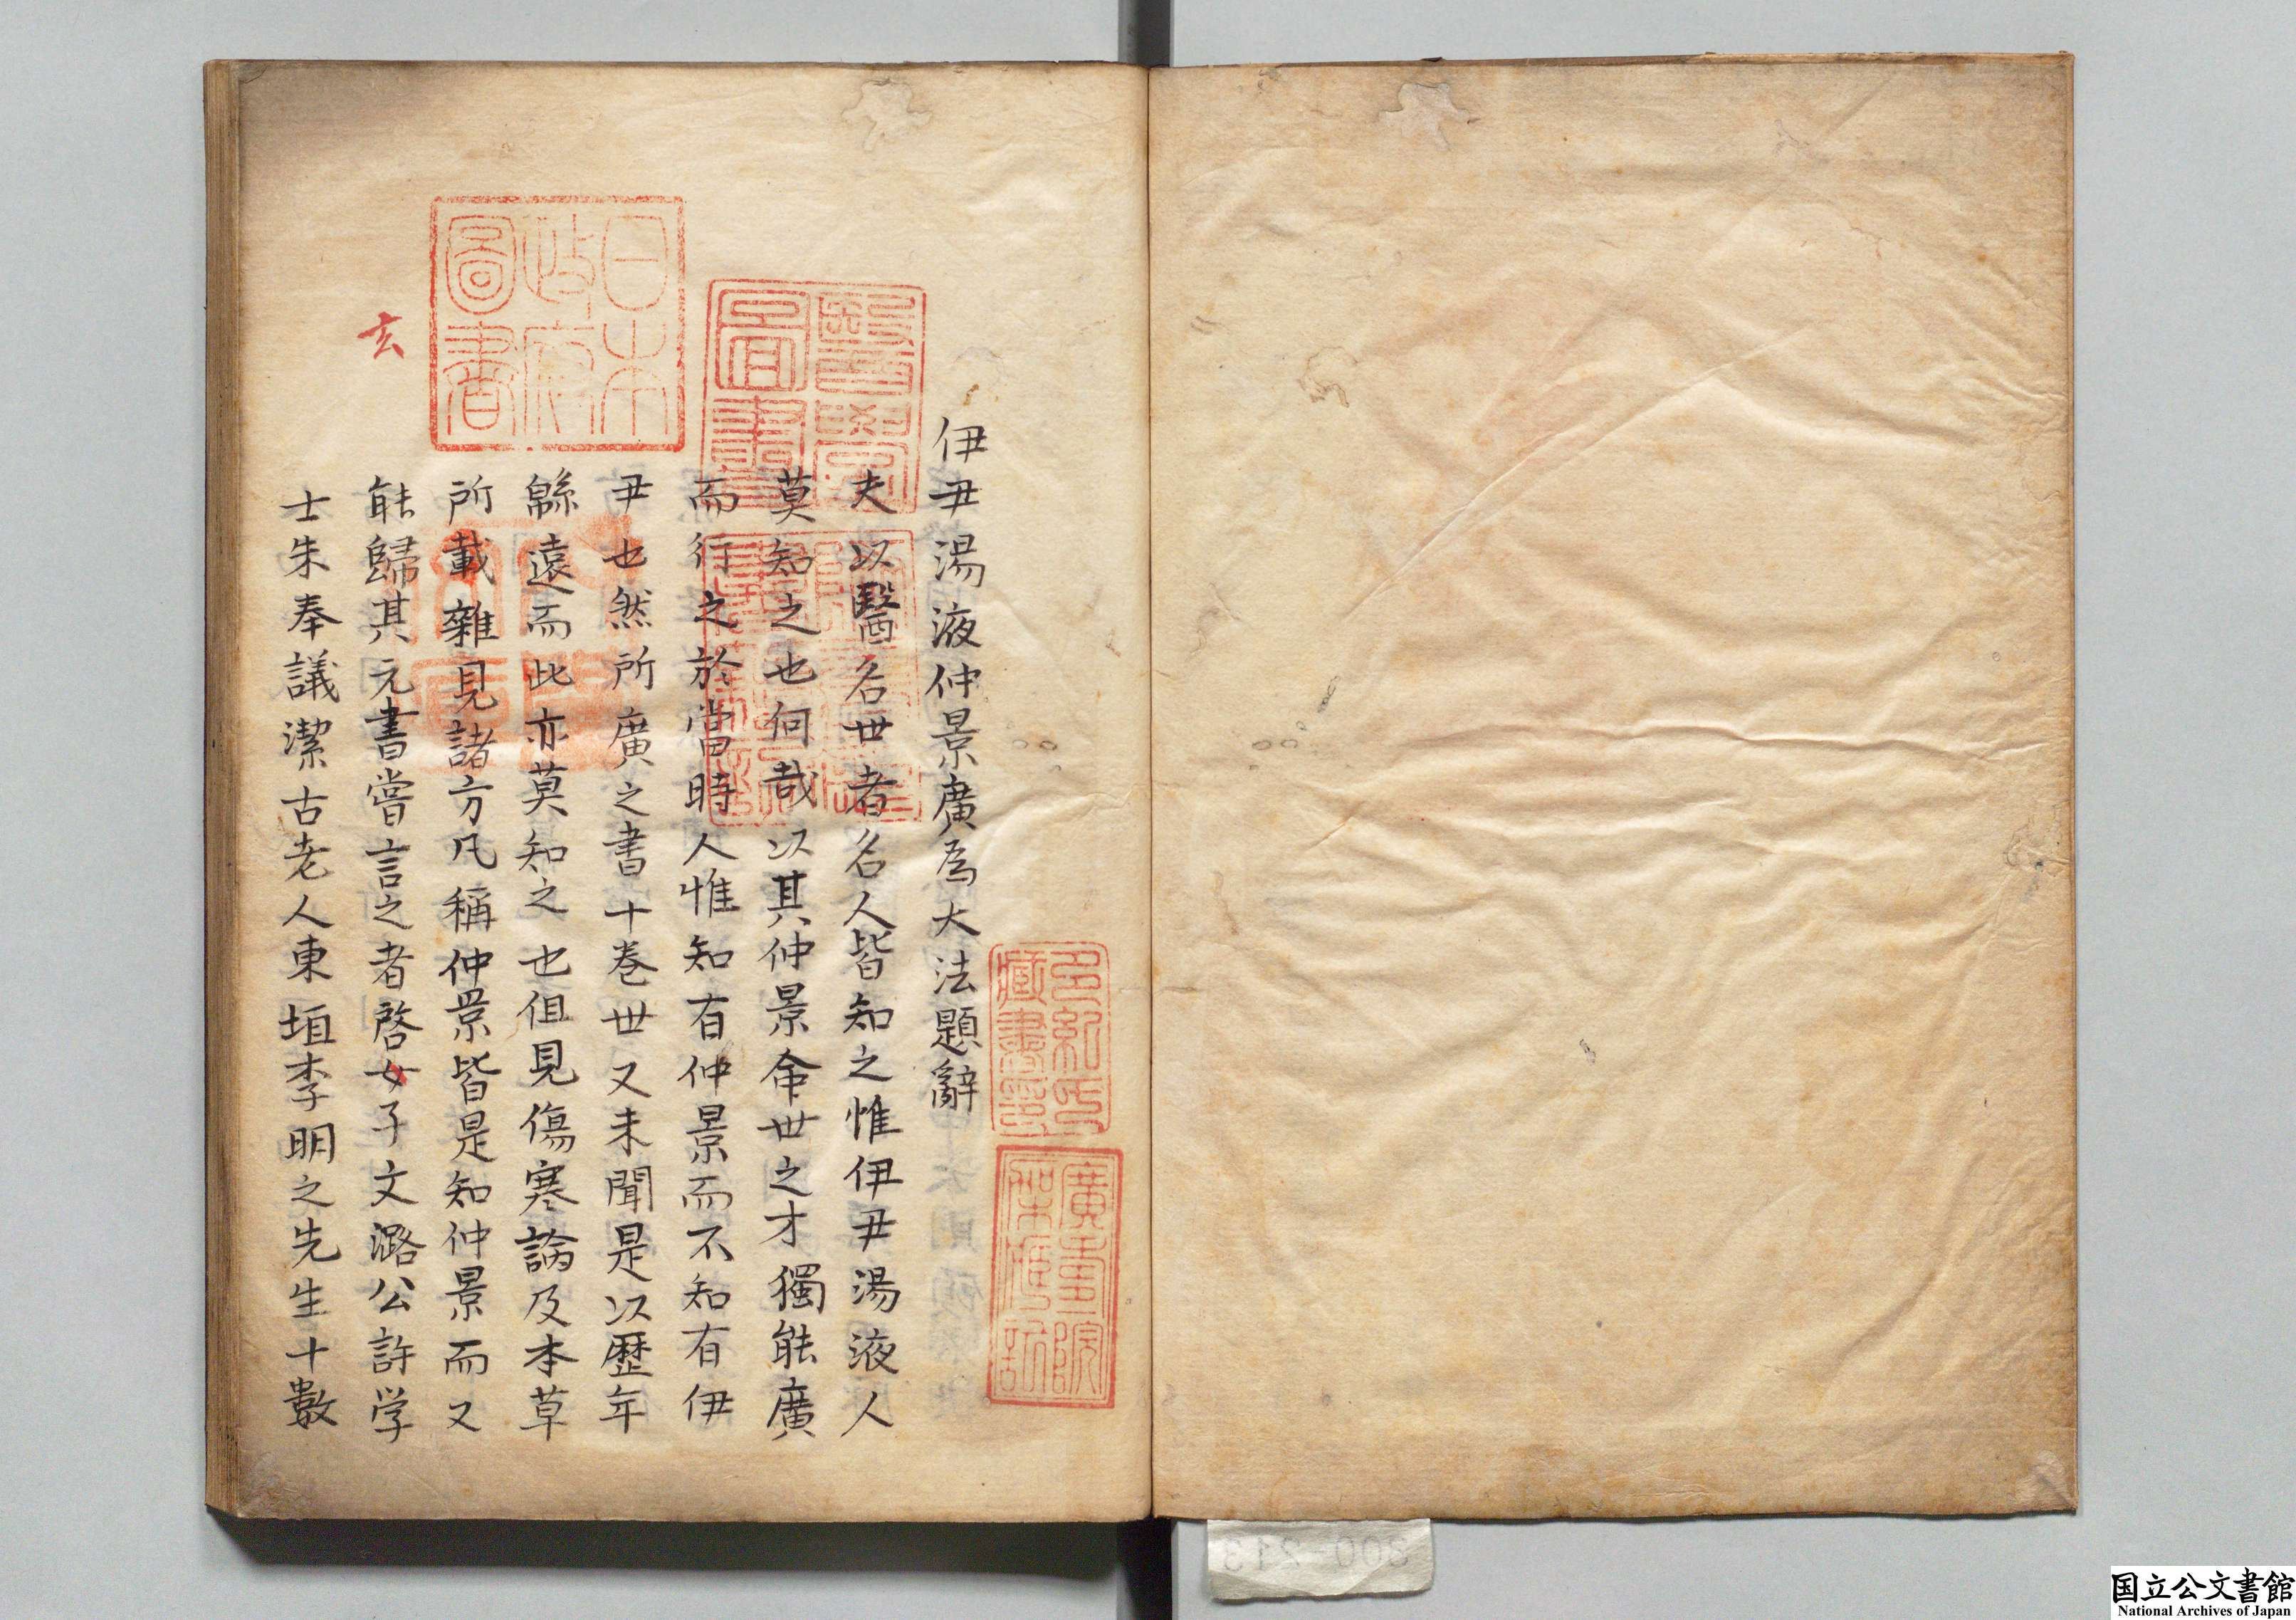 伊尹湯液仲景廣為大法題辭
夫以醫名世者名人皆知之惟伊尹湯液人
莫知之也何哉以其仲景命世之才獨能廣
而行之於當時人惟知有仲景而不知有伊
尹也然所廣之書十卷世又未聞是以歷年
緜遠而此亦莫知之也但見傷寒論及本草
所載雜見諸方凡稱仲景皆是知仲景而又
能歸其元書嘗言之者啓女子文潞公許学
士朱奉議潔古老人東垣李明之先生十數
玄
日本
政府
圖書
醫學
圖書
多紀氏
藏書印
廣壽院
架藏記
300-213
国立公文書館
National Archives of Japan